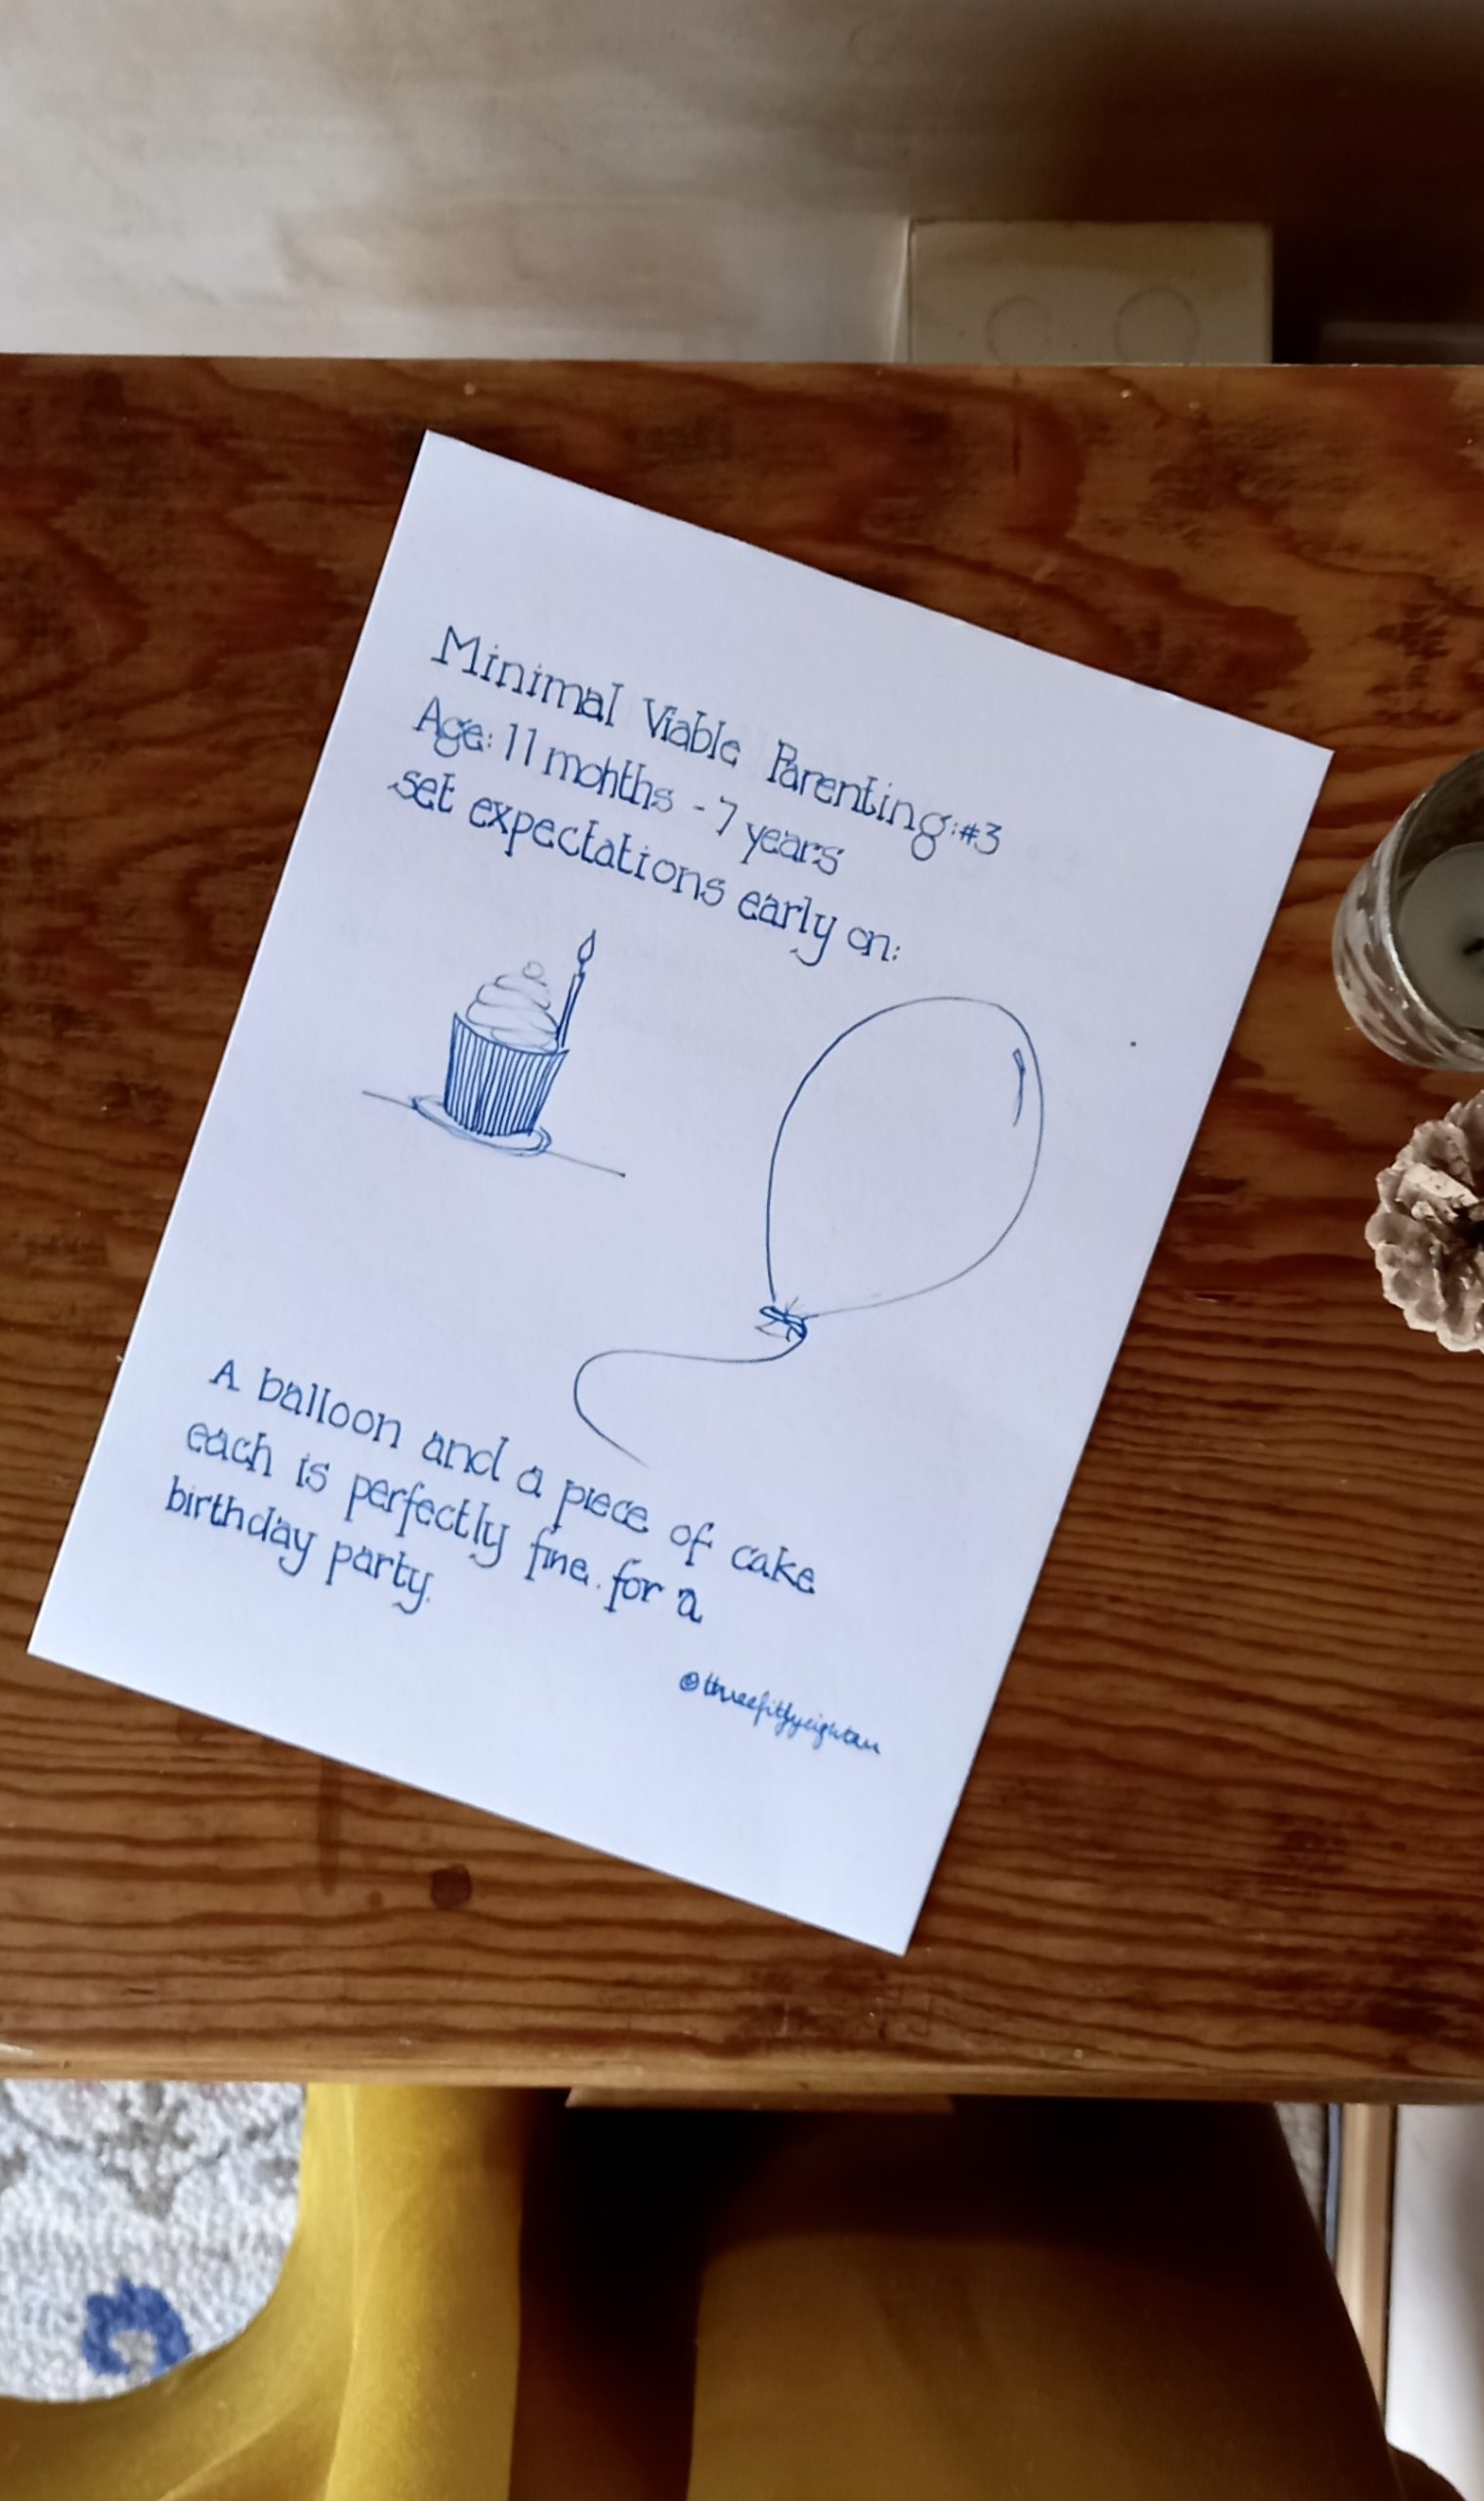 Minimal Viable Parenting:#3
Age: 11 months - 7 years
set expectations early on:
A balloon and a piece of cake
each is perfectly fine. for a
birthday party.
@threefiftyeightau